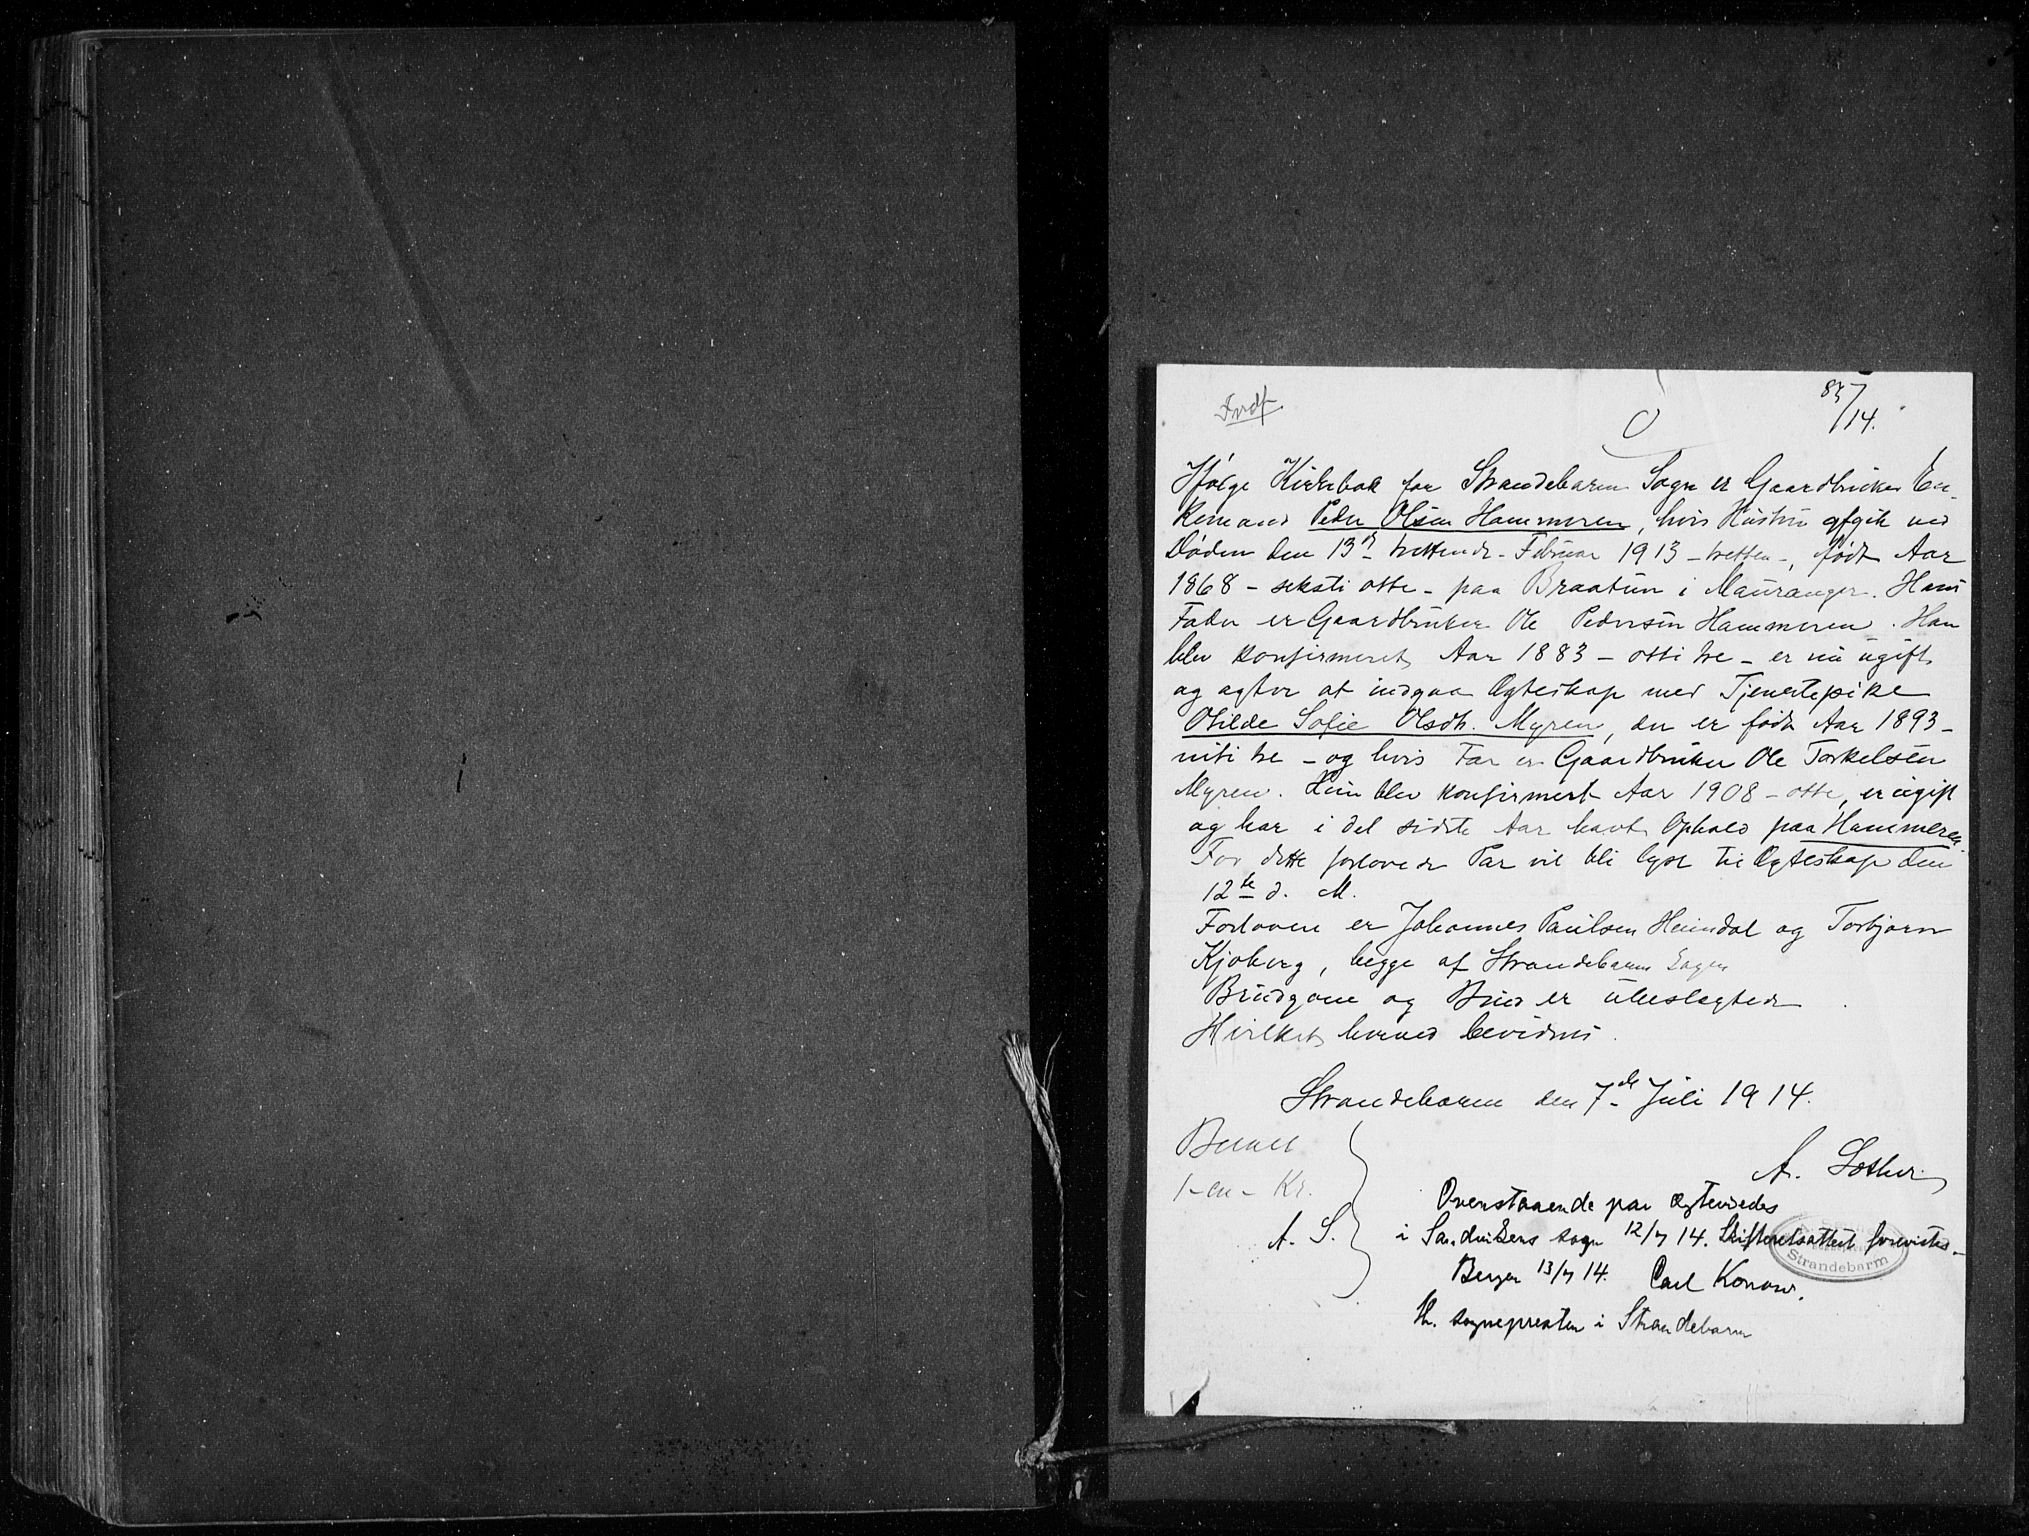 Indf.
87/14.
Ifølge Kirkebok for Strandebarm Sogn er Gaardbruker En-
kemand Peder Olsen Hammeren, hvis Hustru afgik ved
Døden den 13de trettende - Februar 1913 - tretten -, født Aar
1868 - seksti otte - paa Braatun i Mauranger. Hans
Fader er Gaardbruker Ole Pedersen Hammeren. Han
blev konfirmeret Aar 1883 - otti tre - er nu ugift
og agter at indgaa Ægteskap med Tjenestepike
Otilde Sofie Olsdt. Myren, der er født Aar 1893 -
niti tre - og hvis Far er Gaardbruker Ole Torkelsen
Myren. Hun blev konfirmert Aar 1908 - otte, er ugift
og har i det sidste Aar havt Ophold paa Hammeren.
For dette forlovede Par vil bli lyst til Ægteskap den
12te d. M.
Forlovere er Johannes Paulsen Heimdal og Torbjørn
Kjøberg, begge af Strandebarm Sogn
Brudgom og Brud er ubeslægtede
Hvilket herved bevidnes.
Strandebarm den 7de Juli 1914.
Betalt
1 - en - Kr.
A. S.
A. Sother
Ovenstaaende par ægteviedes
i Sandvikens sogn 12/7 14. Skifteretsattest forevistes.
Bergen 13/7 14. Carl Konow.
Th. sognepresten i Strandebarm
Strandebarm